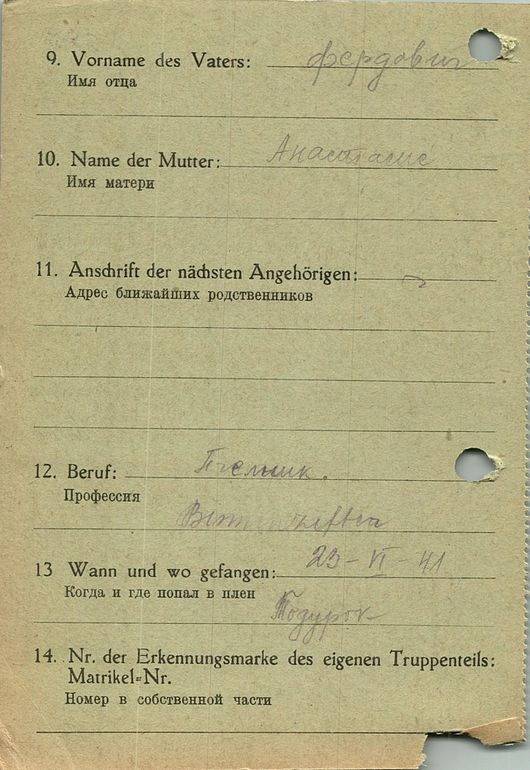 9. Vorname des Vaters: фердович
Имя отца
10. Name der Mutter: Анастасие
Имя матери
11. Anschrift der nächsten Angehörigen:
Адрес ближайших родственников
12. Beruf:
Профессия
13 Wann und wo gefangen: 23-VI-41
Когда и где попал в плен
14. Nr. der Erkennungsmarke des eigenen Truppenteils:
Matrikel=Nr.
Номер в собственной части